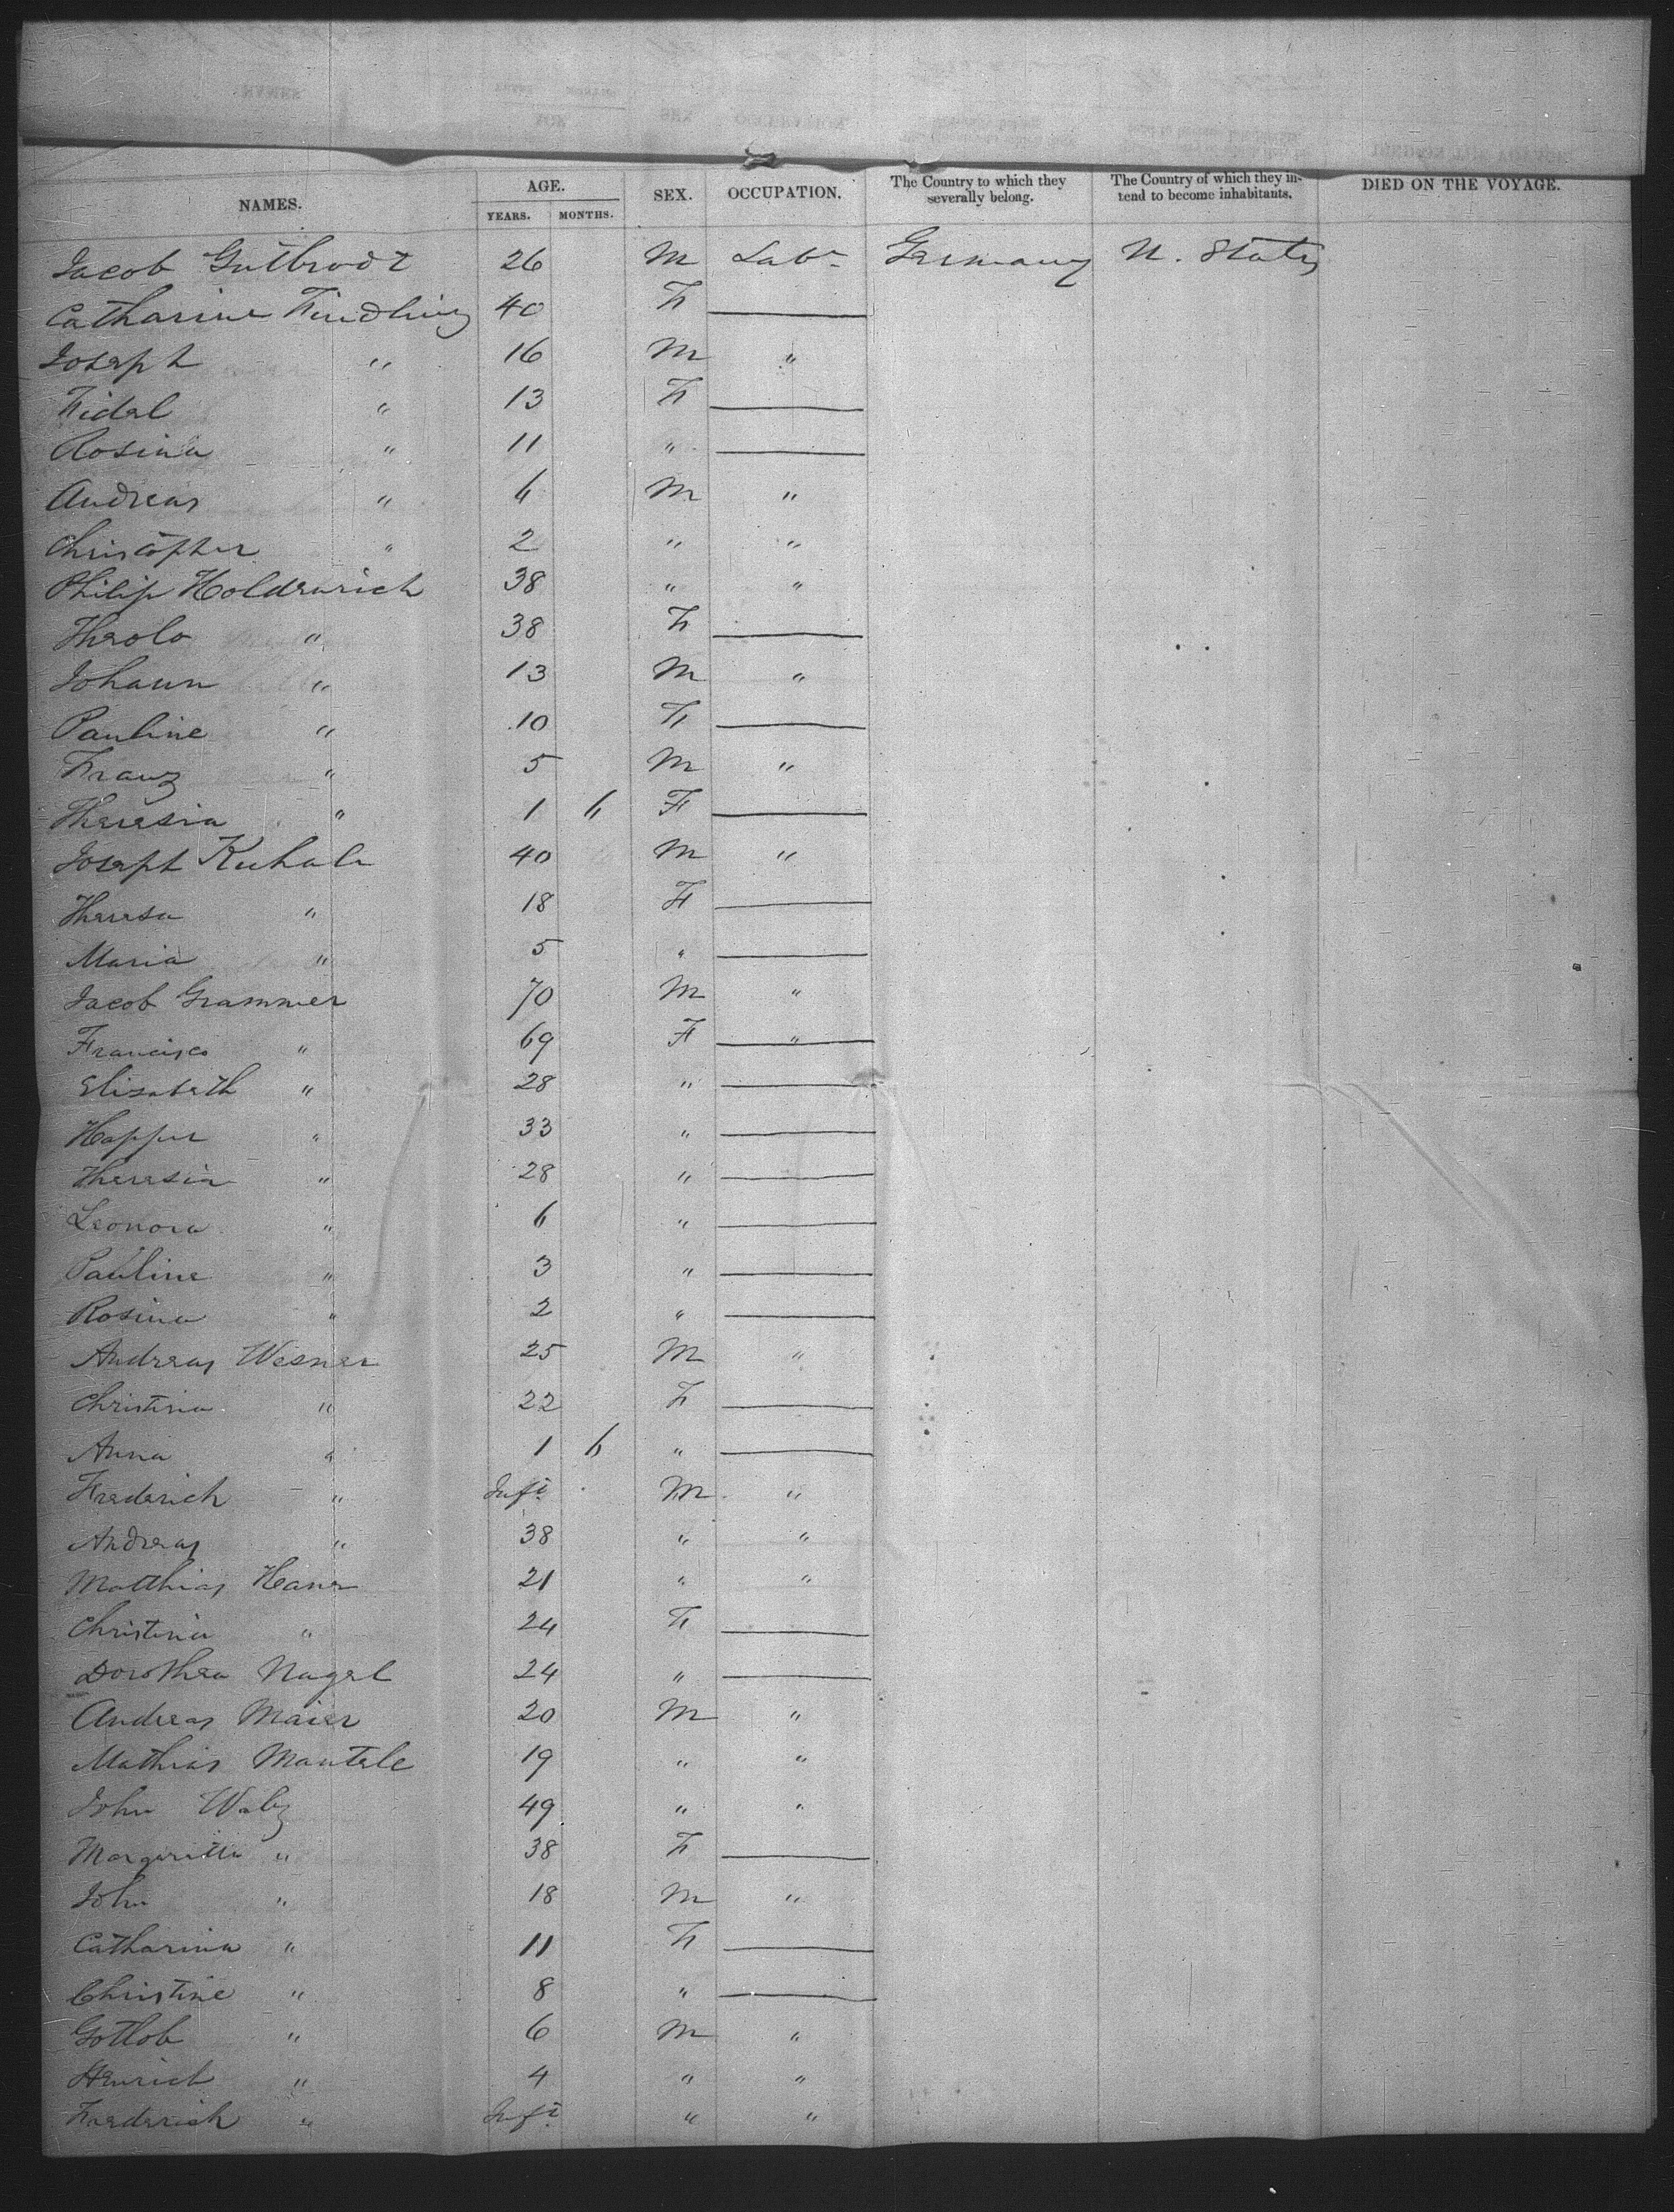 NAMES. AGE. YEARS. MONTHS. SEX. OCCUPATION. The Country to which they severally belong. The Country of which they intend to become inhabitants. DIED ON THE VOYAGE.
Jacob Gutbrodt 26 M Labr Germany U. States
Catharine Findling 40 F
Joseph " 16 M "
Fidel " 13 F
Rosina " 11 "
Andreas " 6 M "
Christopher " 2 " "
Philip Holdenrich 38 " "
Therolo " 38 F
Johann " 13 M "
Pauline " 10 F
Franz " 5 M "
Theresia " 1 6 F
Joseph Kuhale 40 M "
Theresa " 18 F
Maria " 5 "
Jacob Grammer 70 M "
Francisco " 69 F "
Elizabeth " 28 "
Happur " 33 "
Theresia " 28 "
Leonora " 6 "
Pauline " 3 "
Rosina " 2 "
Andreas Wesner 25 M "
Christina " 22 F
Anna " 1 6 "
Frederich " Inft M "
Andreas " 38 " "
Matthias Haner 21 " "
Christina " 24 F
Dorothea Nagel 24 "
Andreas Maier 20 M "
Mathias Mantele 19 " "
John Walz 49 " "
Margaritta " 38 F
John " 18 M "
Catharina " 11 F
Christine " 8 "
Gotlob " 6 M "
Henrich " 4 " "
Frederich " Inft " "